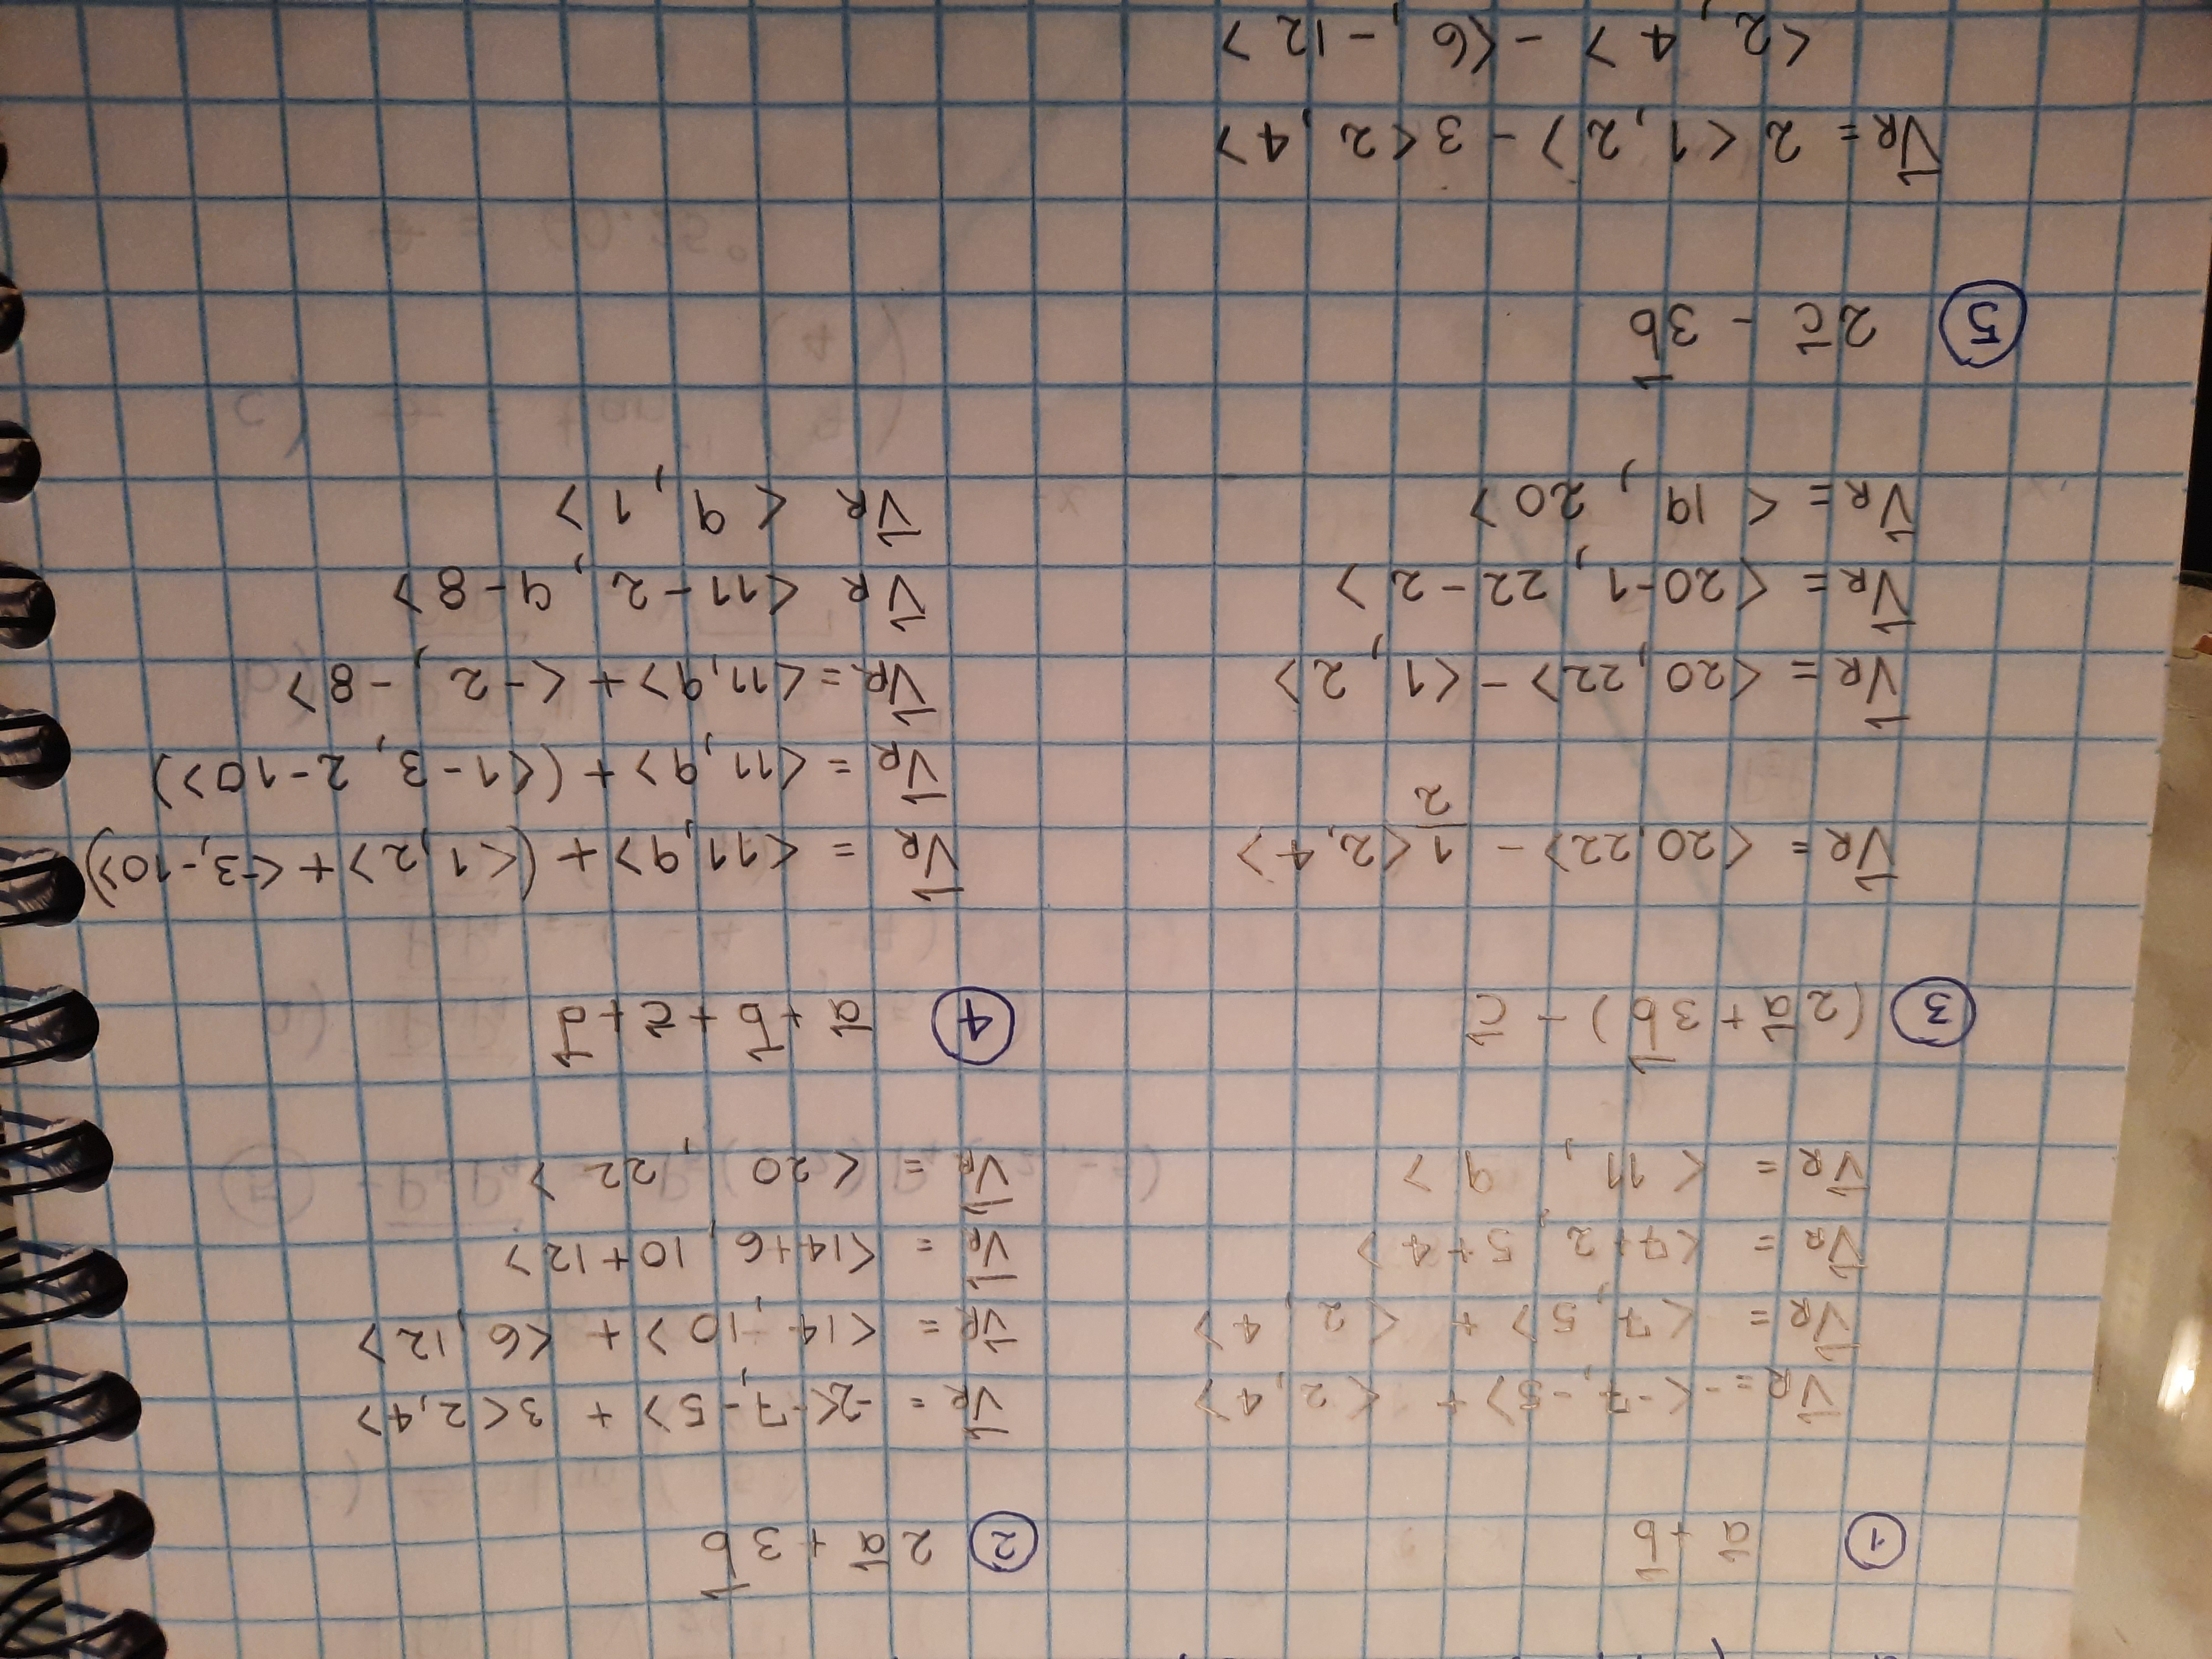 ① a⃗ + b⃗
V⃗R = -<-7,-5> + <2,4>
V⃗R = <7,5> + <2,4>
V⃗R = <7+2,5+4>
V⃗R = <11,9>
② 2a⃗ + 3b⃗
V⃗R = -2<-7,-5> + 3<2,4>
V⃗R = <14,10> + <6,12>
V⃗R = <14+6,10+12>
V⃗R = <20,22>
③ (2a⃗ + 3b⃗) - c⃗
V⃗R = <20,22> - 1/2 <2,4>
V⃗R = <20,22> - <1,2>
V⃗R = <20-1,22-2>
V⃗R = <19,20>
④ a⃗ + b⃗ + c⃗ + d⃗
V⃗R = <11,9> + (<1,2> + <-3,-10>)
V⃗R = <11,9> + (<1-3,2-10>)
V⃗R = <11,9> + <-2,-8>
V⃗R <11-2,9-8>
V⃗R <9,1>
⑤ 2c⃗ - 3b⃗
V⃗R = 2<1,2> - 3<2,4>
<2,4> - <6,-12>